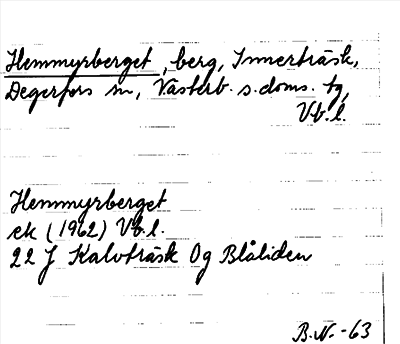 Hemmyrberget, berg, Innerträsk,
Degerfors sn, Västerb. s. doms. tg,
Vb. l.
Hemmyrberget
ek (1962) Vb. l.
22 J Kalvträsk 0g Blåliden
B.N. -63